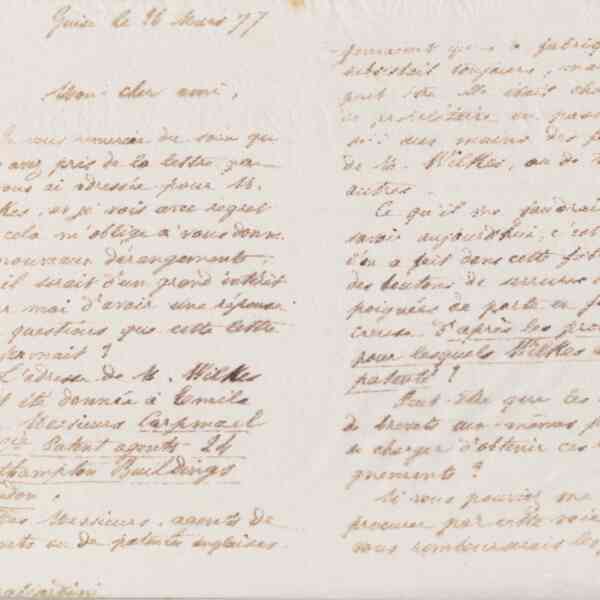 Guise le 26 Mars 77
Mon cher ami,
vous remercie du soin que
avez pris de la lettre que
vous ai adressée pour M.
kes, et je vois avec regret
cela m'oblige à vous donner
nouveaux dérangements.
il serait d'un grand intérêt
r moi d'avoir une réponse
questions que cette lettre
fermait ?
L'adresse de M. Wilkes
été donnée à Emile
Messieurs Carpmael
Patent agents 24
thampton Buildings
ndon !
Messieurs, agents de
ou de patents anglaises
la fabriq
subsistait toujours, mai
peut être elle était cha
de propriétaire en pass
des mains des
de M. Wilkes, ou de
autres.
Ce qu'il me faudrai
savoir aujourd'hui, c'est
l'on a fait dans cette fab
des boutons de serrures
poignées de porte en fo
creuse d'après les pro
pour lesquels Wilkes
patenté ?
Peut-être que les
de brevets eux-mêmes p
se charger d'obtenir ces
gnements ?
Si vous pouviez me
procurer par cette voie
vous rembourserais les